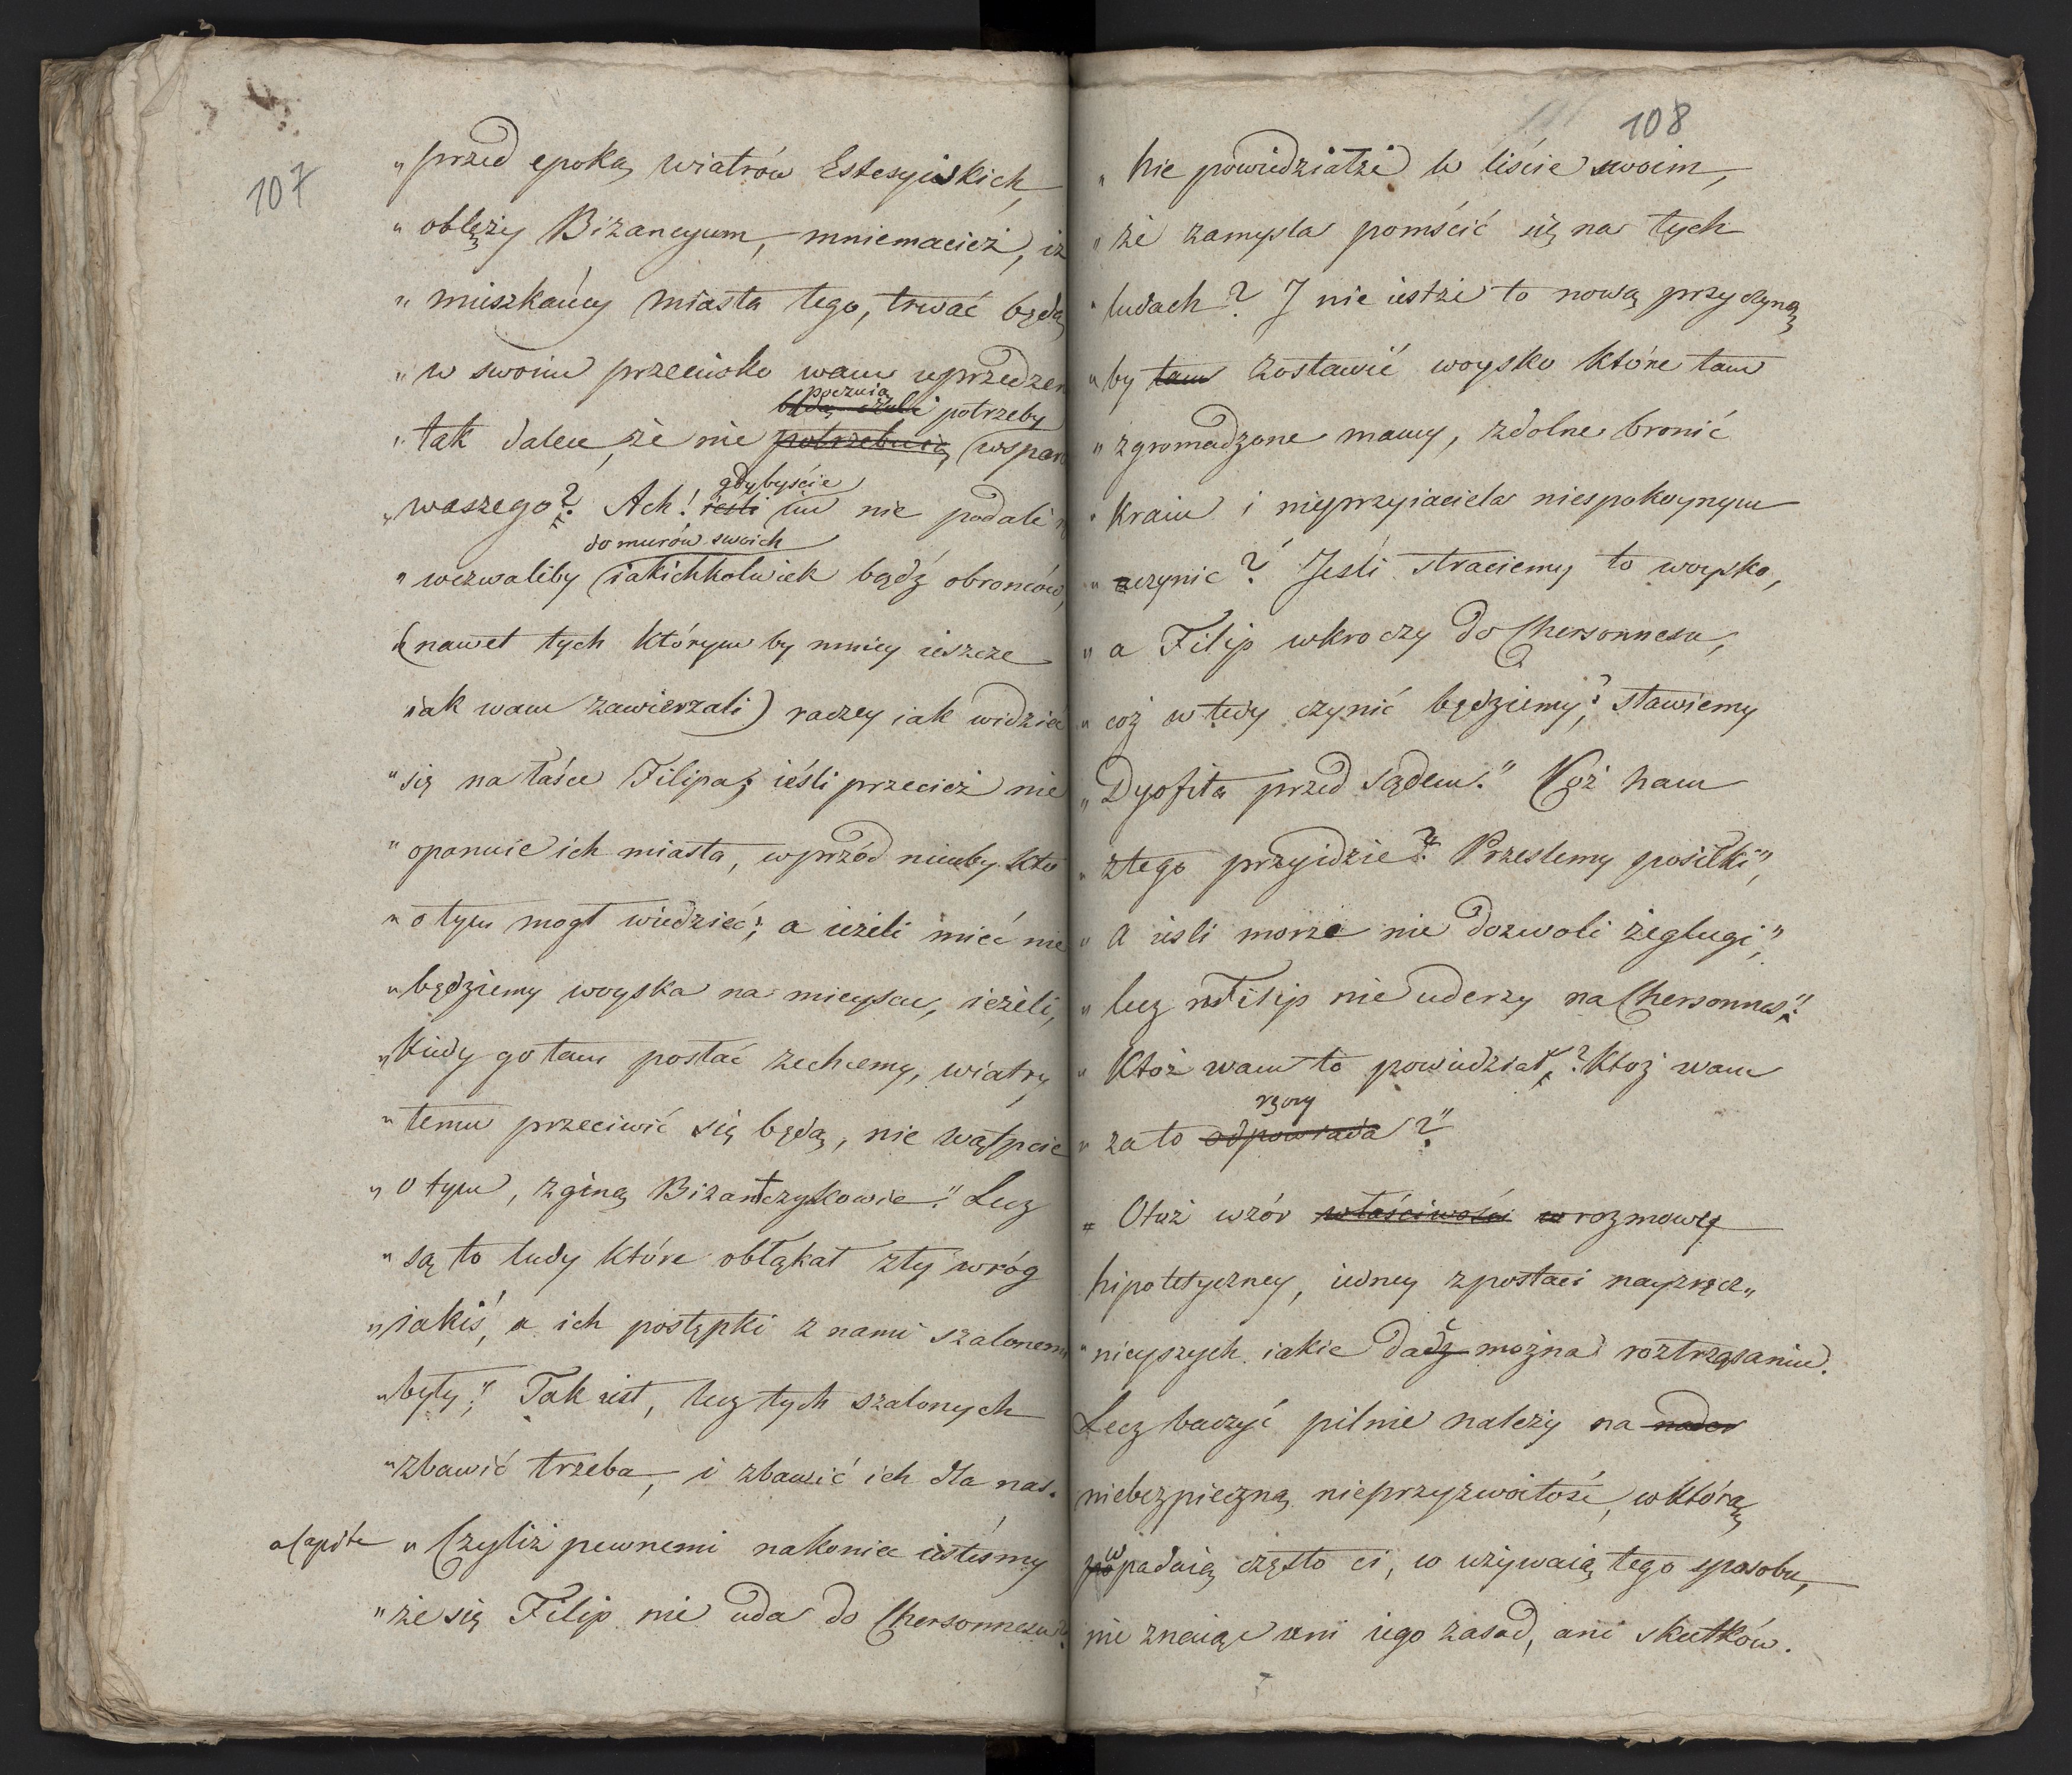 107
„przed epoką wiatrów Estesyiskich,
„oblęży Bizancyum, mniemacież, iż
„mieszkańcy miasta tego, trwać będą
„w swoim przeciwko wam uprzedzen
poczuią
będą czuli potrzeby
„tak dalece, że nie potrzebuią wspar
gdybyście
„waszego? Ach! ieśli im nie podali
do murów swoich
„wezwaliby iakichkolwiek bądź obrońców,
(nawet tych którym by mniey ieszcze
iak wam zawierzali) raczey iak widzieć
„się na łasce Filipa; ieśli przecież nie
„opanuie ich miasta, wprzód nimby kto
„o tym mogł wiedzieć; a ieżeli mieć nie
„będziemy woyska na mieyscu, ieżeli,
„kiedy go tam posłać zechcemy, wiatry
„temu przeciwić się będą, nie wątpcie
„o tym, zginą Bizantczykowie." Lecz
„są to ludy które obłąkał zły wróg
„iakiś, a ich postępki z nami szalonemi
„były;" Tak iest, lecz tych szalonych
„zbawić trzeba, i zbawić ich dla nas.
a Capite „Czyliż pewnemi nakoniec iesteśmy
„że się Filip nie uda do Chersonnezu?
108
„Nie powiedziałże w liście swoim,
„że zamyśla pomścić się na tych
„ludach? I nie iestże to nową przyczyną
„by tam zostawić woysko które tam
„zgromadzone mamy, zdolne bronić
„kraiu i nieprzyiaciela niespokoynym
„uczynić? Jeśli straciemy to woysko,
„a Filip wkroczy do Chersonnesu,
„coż wtedy czynić będziemy? stawiemy
„Dyofita przed sądem." Coż nam
„ztego przyidzie? Prześlemy posiłki",
„A ieśli morze nie dozwoli żeglugi,"
„lecz Filip nie uderzy na Chersonnes,"
„Ktoż wam to powiedział? Ktoż wam
rzczy
„za to odpowiada?"
„Otoż wzór właściwości w rozmowy
hipotetyczney, iedney z postaci nayzręcz„
„nieyszych iakie dadz można roztrząsaniu.
Lecz baczyć pilnie należy na nader
niebezpieczną nieprzyzwoitość, w którą
w
popadaią często ci, co używaią tego sposobu,
nie znaiąc ani iego zasad, ani skutków.